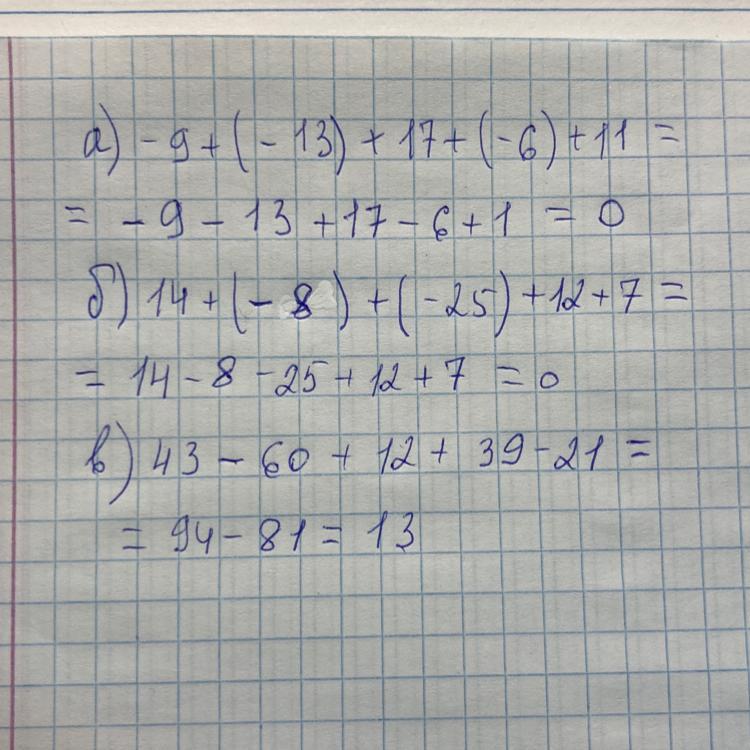 а) -9+(-13)+17+(-6)+11=
= -9-13+17-6+1=0
б) 14+(-8)+(-25)+12+7=
= 14-8-25+12+7=0
в) 43-60+12+39-21=
= 94-81=13